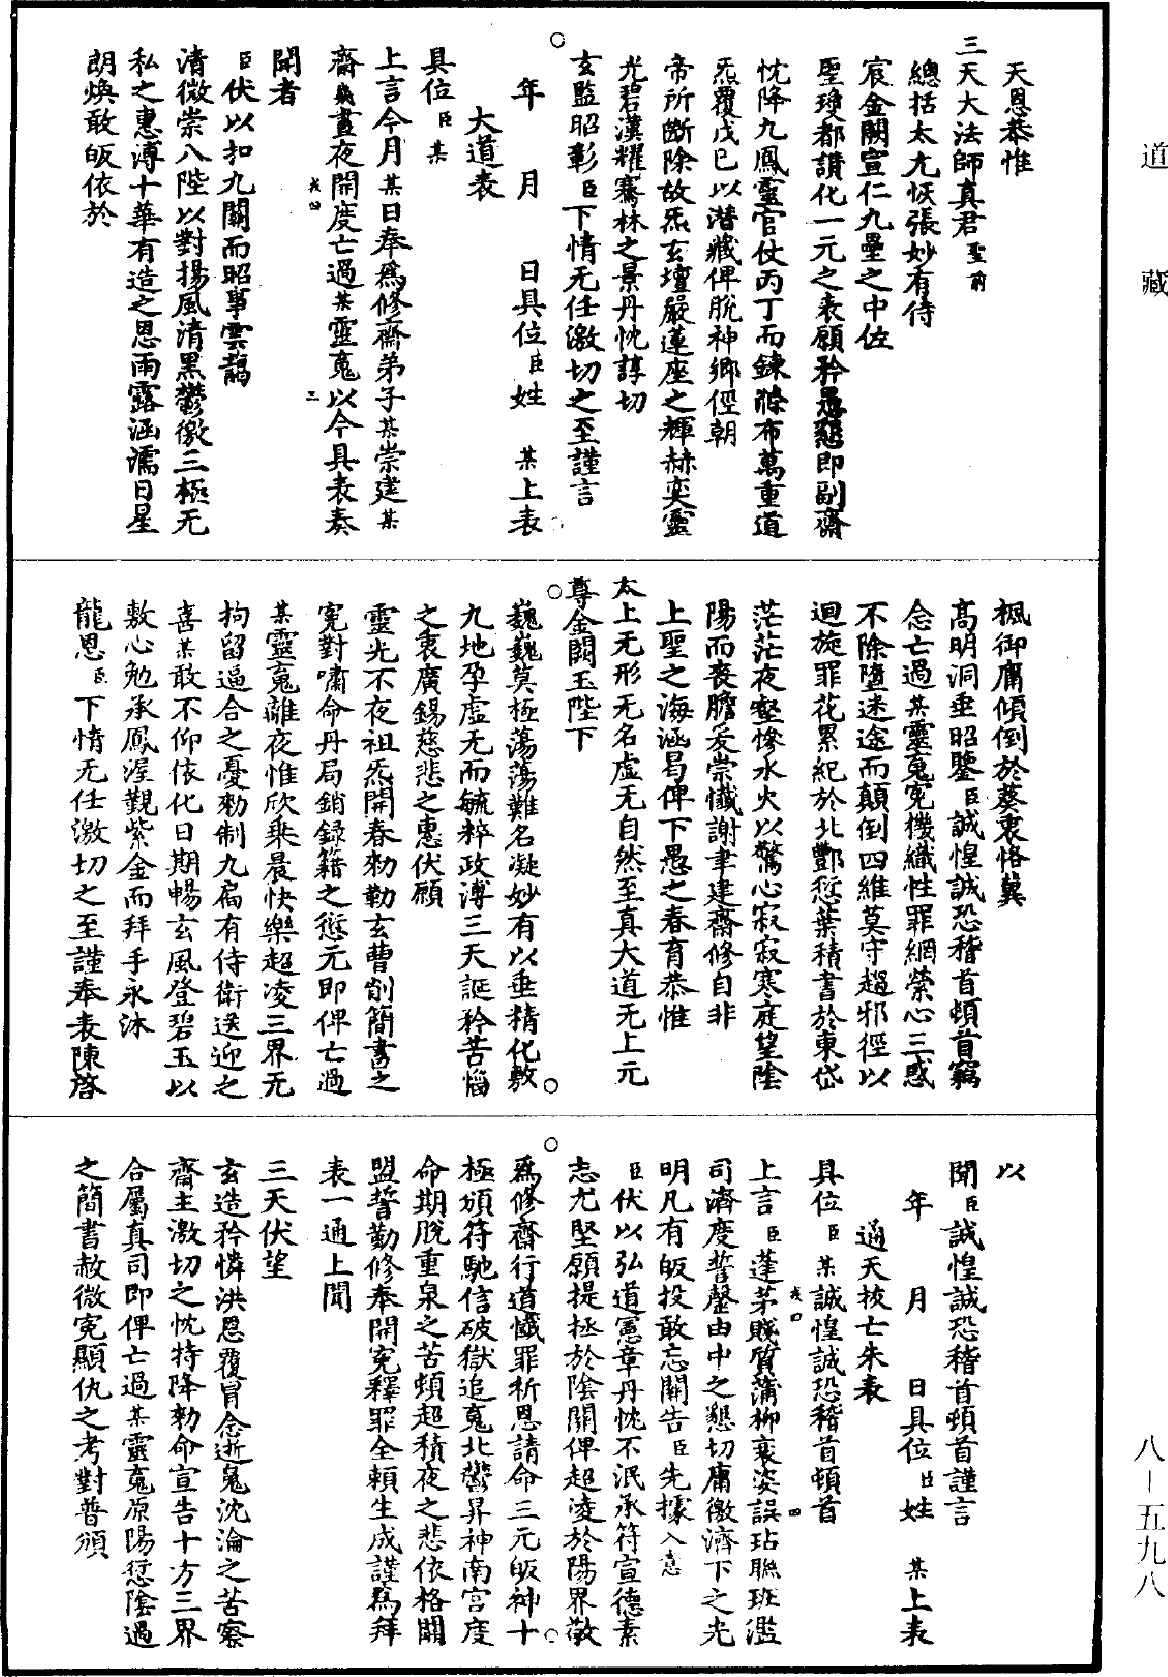 道藏
天恩恭惟
三天大法師真君聖前
總括太尢恢張妙有侍
宸金闕宣仁九壘之中佐
聖瓊都讃化一元之表願矜愚懇即副齋
忱降九鳳靈官仗丙丁而鍊滌布萬重道
炁覆戊巳以潜藏俾脫神鄉俓朝
帝所斷除故炁玄壇嚴蓮座之輝赫奕靈
光碧漢耀騫林之景丹忱諄切
玄監昭彰臣下情无任激切之至謹言
年 月 日具位臣姓 某上表
大道表
具位臣某
上言今月某日奉爲修齋弟子某崇建某
齋幾晝夜開度亡過某靈䰟以今具表奏
聞者
臣伏以扣九關而昭事雲龍
清微崇八陛以對揚風清黑欝徼三極无
私之惠溥十華有造之恩雨露涵濡日星
朗煥敢皈依於
楓御庸傾倒於葵衷恪冀
高明洞垂昭鑒臣誠惶誠恐稽首頓首竊
念亡過某靈䰟寃機織性罪網縈心三惑
不除墮迷途而顛倒四維莫守趨邪徑以
迴旋罪花累紀於北酆愆葉積書於東岱
茫茫夜壑慘水火以驚心寂寂寒庭望陰
陽而喪膽爰崇懺謝聿建齋修自非
上聖之海涵曷俾下愚之春育恭惟
太上无形无名虛无自然至真大道无上元
尊金闕玉陛下
巍巍莫極蕩蕩難名凝妙有以垂精化敷
九地孕虛无而毓粹政溥三天誕矜苦惱
之衷廣錫慈悲之惠伏願
靈光不夜祖炁開春勑勒玄曹削簡書之
寃對嘯命丹局銷録籍之愆元即俾亡過
某靈䰟離夜惟欣乗晨快樂超凌三界无
拘留逼合之憂勑制九扃有侍衛送迎之
喜某敢不仰依化日期暢玄風登碧玉以
敷心勉承鳳渥覲紫金而拜手永沐
龍恩臣下情无任激切之至謹奉表陳啓
以
聞臣誠惶誠恐稽首頓首謹言
年 月 日具位臣姓 某上表
通天拔亡朱表
具位臣某誠惶誠恐稽首頓首
上言臣蓬茅賤質蒲柳衰姿誤玷聯班濫
司濟度誓罄由中之懇切庸徼濟下之光
明凡有皈投敢忘關告臣先據入意
臣伏以弘道憲章丹忱不泯承符宣德素
志尤堅願提拯於陰關俾超凌於陽界敬
爲修齋行道懺罪祈恩請命三元皈神十
極頒符馳信破獄追䰟北欝昇神南宮度
命期脫重泉之苦頓超積夜之悲依格關
盟誓勤修奉開寃釋罪全頼生成謹爲拜
表一通上聞
三天伏望
玄造矜憐洪恩覆冒念逝䰟沈淪之苦察
齋主激切之忱特降勑命宣告十方三界
合屬真司即俾亡過某靈䰟原陽愆陰過
之簡書赦微寃顯仇之考對普頒
八－五九八